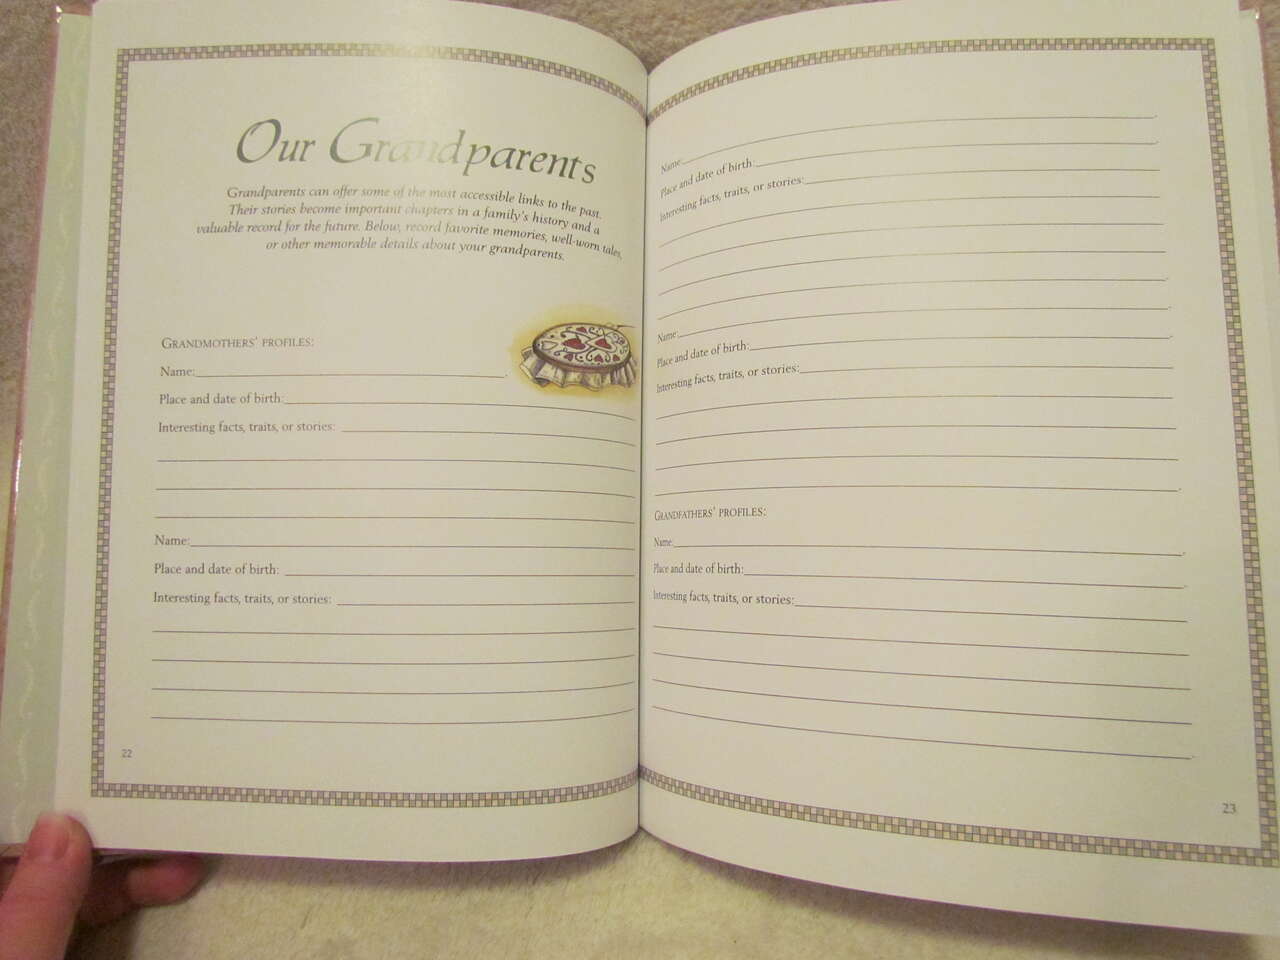 Our Grandparents
Grandparents can offer some of the most accessible links to the past.
Their stories become important chapters in a family's history and a
valuable record for the future. Below, record favorite memories, well-worn tales,
or other memorable details about your grandparents.
GRANDMOTHERS' PROFILES:
Name:
Place and date of birth:
Interesting facts, traits, or stories:
Name:
Place and date of birth:
Interesting facts, traits, or stories:
22
Name:
Place and date of birth:
Interesting facts, traits, or stories:
Name:
Place and date of birth:
Interesting facts, traits, or stories:
GRANDFATHERS' PROFILES:
Name:
Place and date of birth:
Interesting facts, traits, or stories:
23